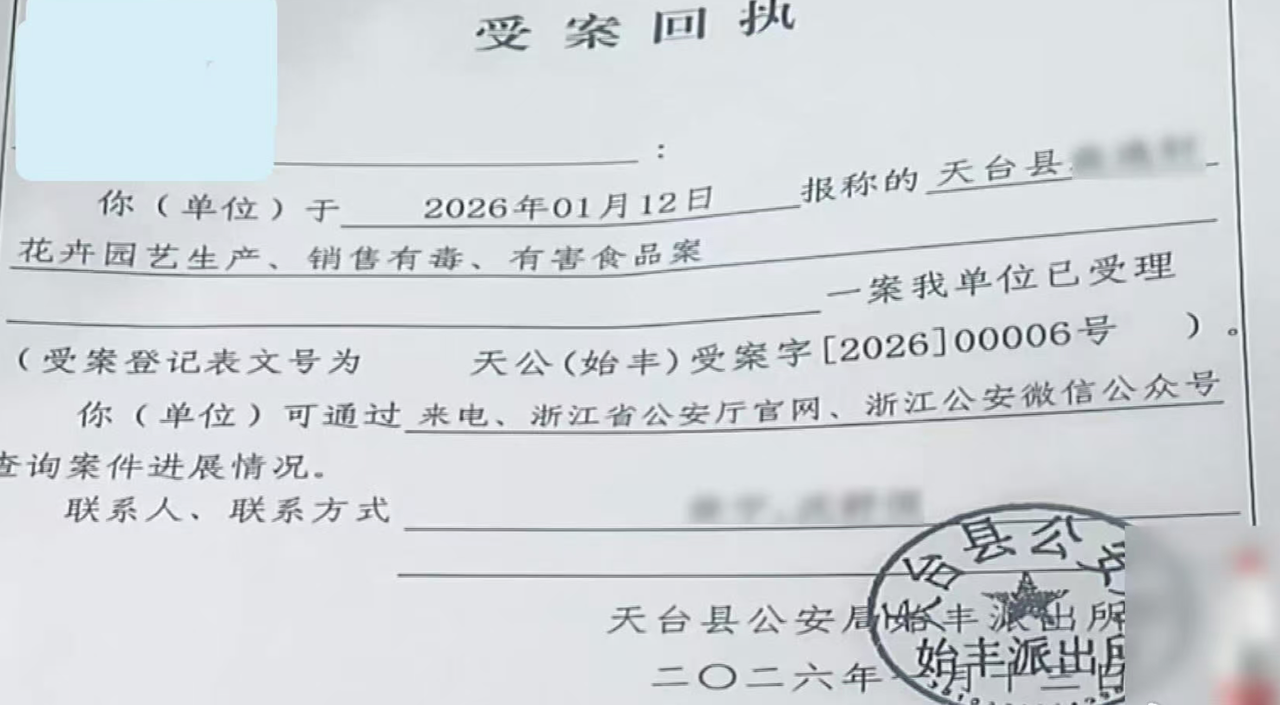 受案回执
：
你（单位）于 2026年01月12日 报称的 天台县
花卉园艺生产、销售有毒、有害食品案
一案我单位已受理
（受案登记表文号为 天公(始丰)受案字[2026]00006号 ）。
你（单位）可通过 来电、浙江省公安厅官网、浙江公安微信公众号
查询案件进展情况。
联系人、联系方式
天台县公安局始丰派出所
二〇二六年一月十二日
天台县公安
始丰派出所